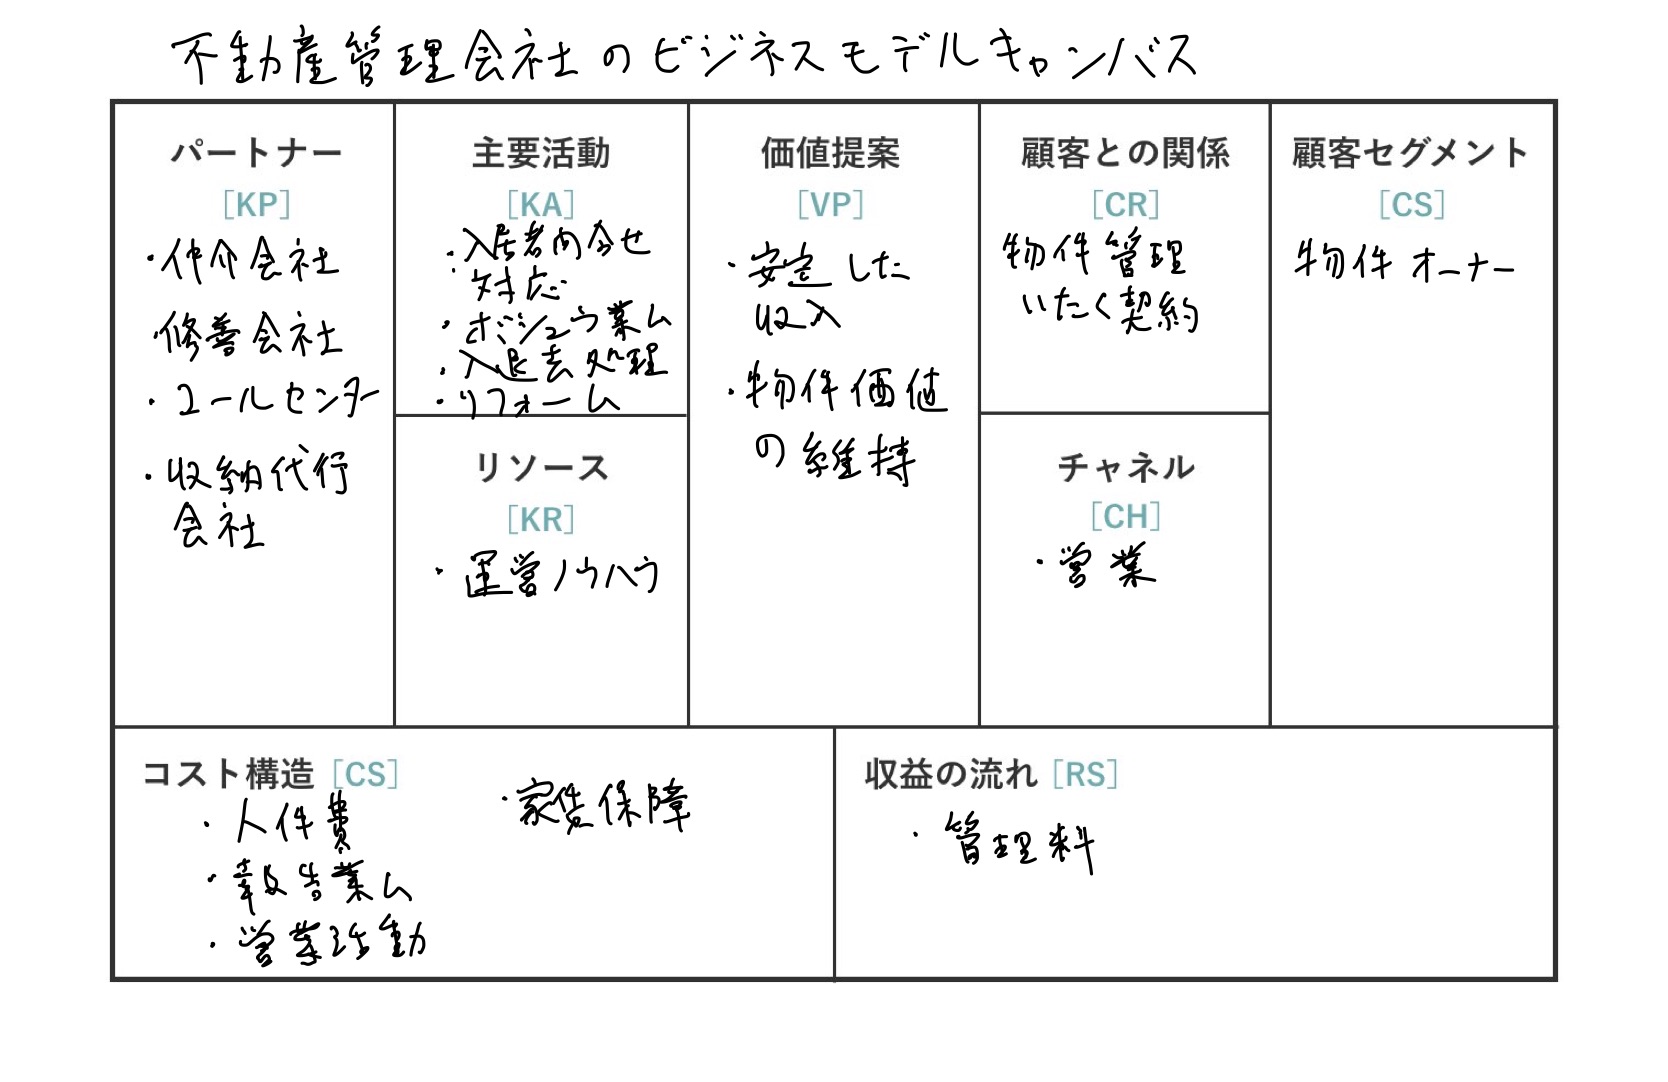 不動産管理会社のビジネスモデルキャンバス
パートナー
[KP]
・仲介会社
・修善会社
・コールセンター
・収納代行
会社
主要活動
[KA]
・入居者問合せ
対応
・ボシュウ業ム
・入退去処理
・リフォーム
リソース
[KR]
・運営ノウハウ
価値提案
[VP]
・安定した
収入
・物件価値
の維持
顧客との関係
[CR]
物件管理
いたく契約
チャネル
[CH]
・営業
顧客セグメント
[CS]
物件オーナー
コスト構造 [CS]
・人件費
・報告業ム
・営業活動
・家賃保障
収益の流れ [RS]
・管理料